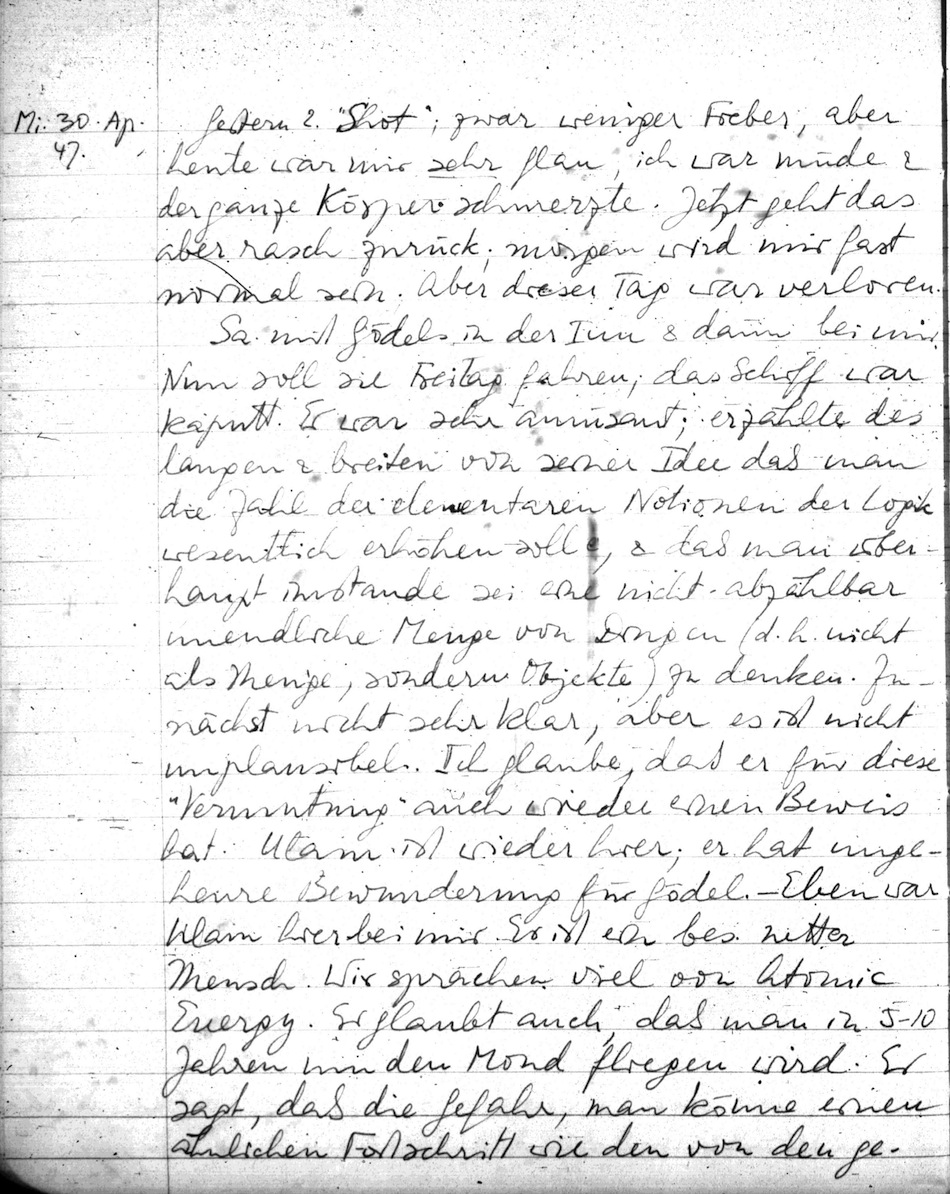 Mi. 30. Ap.
47.
Gestern 2. "Shot"; zwar weniger Fieber, aber
heute war mir sehr flau, ich war müde &
der ganze Körper schmerzte. Jetzt geht das
aber rasch zurück; morgen wird mir fast
normal sein. Aber dieser Tag war verloren.
Sa. mit Gödels in der Inn & dann bei mir.
Nun soll sie Freitag fahren; das Schiff war
kaputt. Er war sehr amüsant; erzählte des
langen & breiten von seiner Idee das man
die Zahl der elementaren Notionen der Logik
wesentlich erhöhen solle, & das man über-
haupt imstande sei eine nicht-abzählbar
unendliche Menge von Dingen (d.h. nicht
als Menge, sondern Objekte) zu denken. Zu-
nächst nicht sehr klar, aber es ist nicht
unplausibel. Ich glaube, daß er für diese
"Vermutung" auch wieder einen Beweis
hat. Ulam ist wieder hier; er hat unge-
heure Bewunderung für Gödel. – Eben war
Ulam hier bei mir. Er ist ein bes. netter
Mensch. Wir sprachen viel von Atomic
Energy. Er glaubt auch, das man in 5-10
Jahren um den Mond fliegen wird. Er
sagt, daß die Gefahr, man könne einen
ähnlichen Fortschritt wie den von den ge-